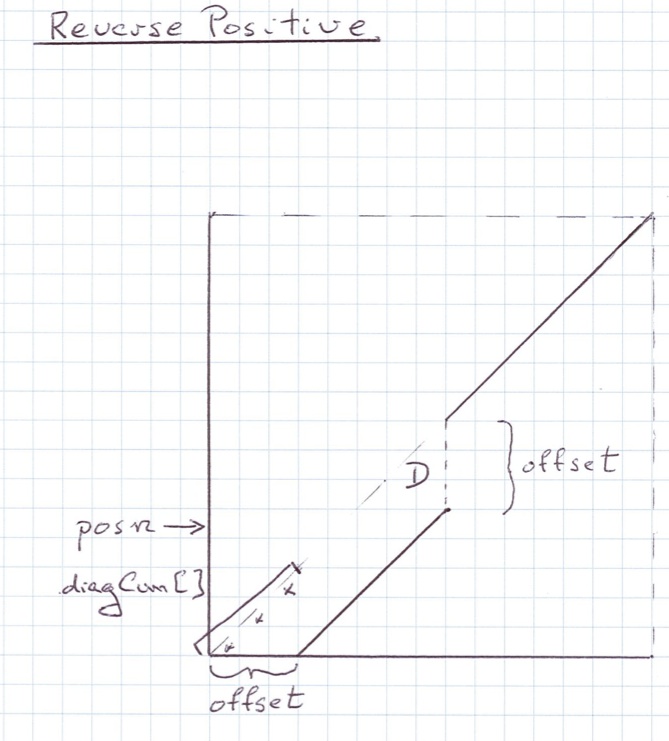 Reverse Positive.
D
} offset
posn →
diagCum[]
x
x
x
offset